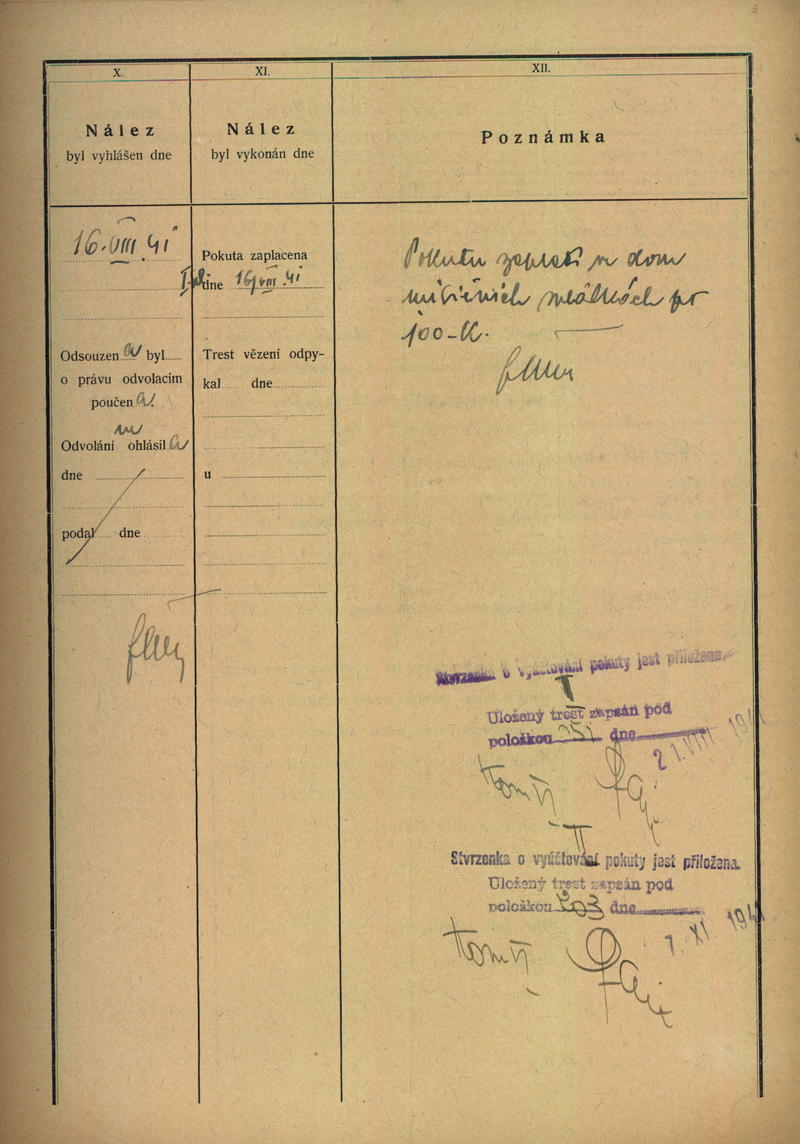 X.
Nález
byl vyhlášen dne
16.VIII.41
Odsouzen a byl
o právu odvolacím
poučen a.
Odvolání ohlásil a
dne
podal dne
XI.
Nález
byl vykonán dne
Pokuta zaplacena
dne 16/VIII.41
Trest vězení odpy-
kal dne
u
XII.
Poznámka
Pokutu zaplatí ve dvou
měsíčních splátkách po
100-K.
Stvrzenka o vyúčtování pokuty jest přiložena.
I
Uložený trest zapsán pod
položkou dne
21 VIII 194
II
Stvrzenka o vyúčtování pokuty jest přiložena.
Uložený trest zapsán pod
položkou 503 dne
7. XI 194